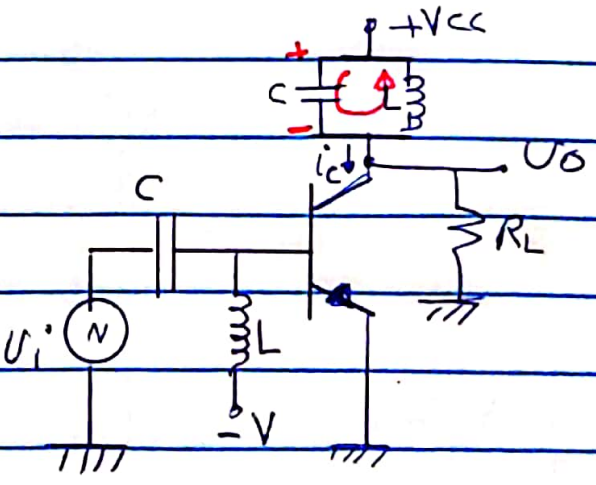 +VCC
+
C
L
-
ic
Uo
C
RL
N
Ui
L
-V